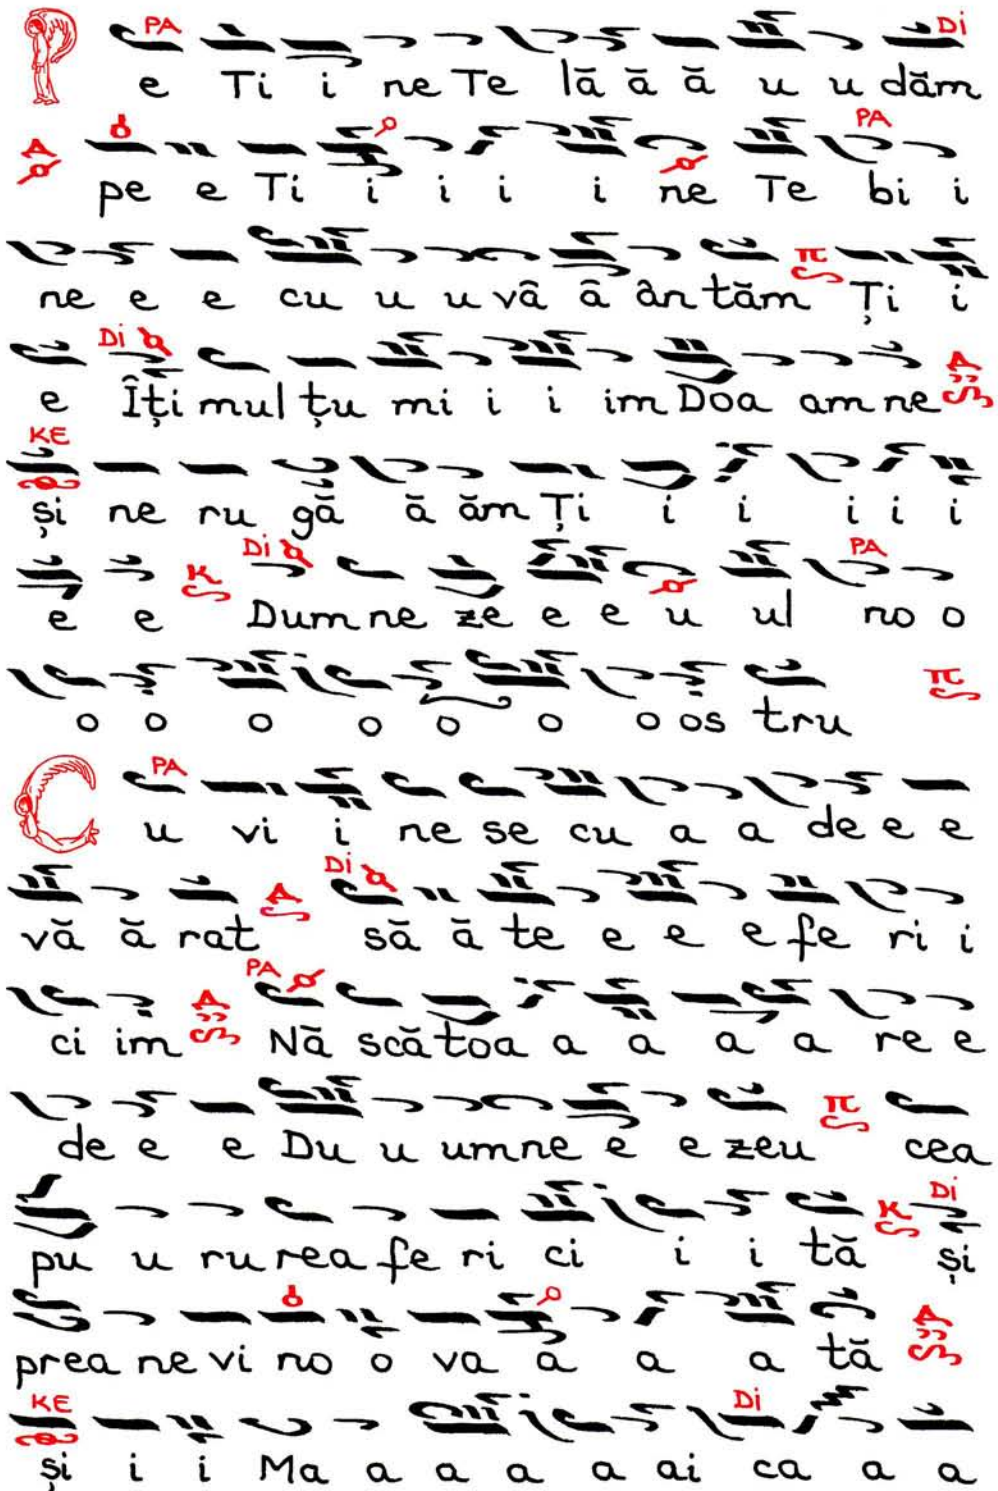 PA Di
P e Ti i ne Te lă ă ă u u dăm
PA
pe e Ti i i i i ne Te bi i
ne e e cu u u vâ â ân tăm π Ți i
Di
e Îți mul țu mi i i im Doa am ne
KE
și ne ru gă ă ăm Ți i i i i i
Di PA
e e K Dum ne ze e e u ul no o
o o o o o o o os tru π
PA
C u vi i ne se cu a a de e e
Di
vă ă rat să ă te e e e fe ri i
PA
ci im Nă scă toa a a a a re e
de e e Du u umne e e zeu π cea
Di
pu u ru rea fe ri ci i i tă K și
prea ne vi no o va a a a tă
KE Di
și i i Ma a a a a ai ca a a